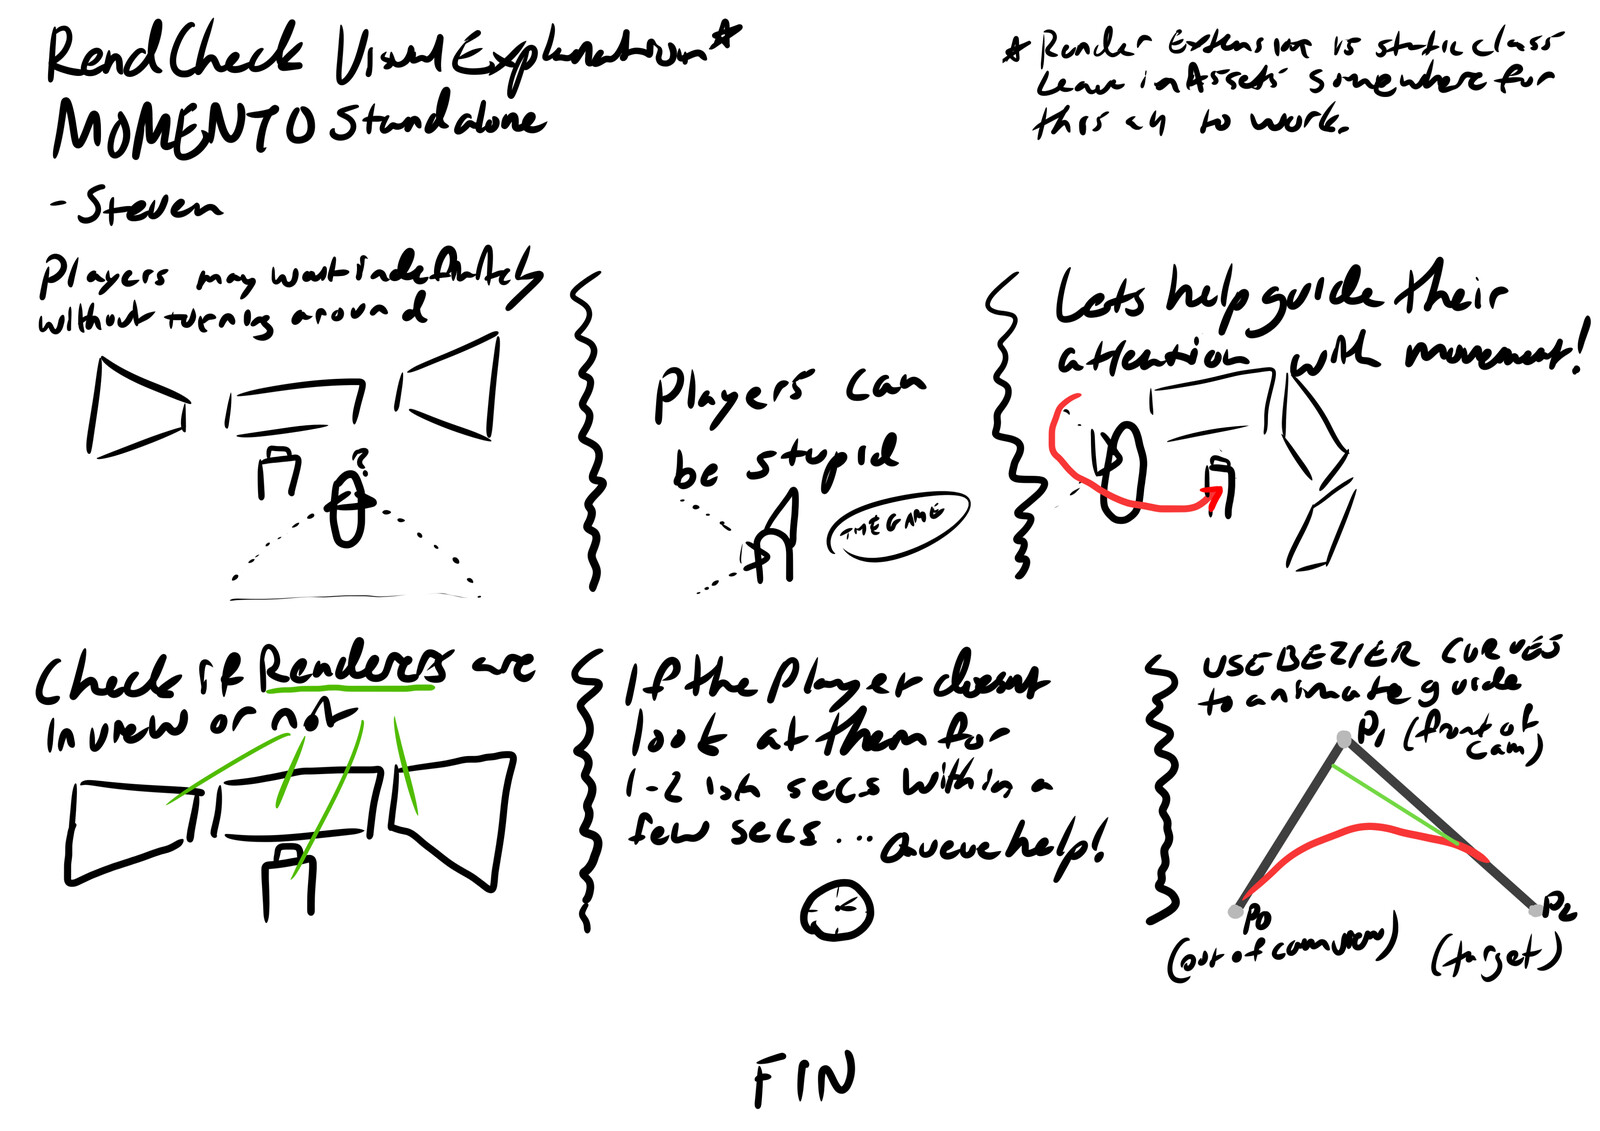 RendCheck Visual Explanation*
MOMENTO Standalone
- Steven
* Render Extension is static class
Leave in Assets somewhere for
this all to work.
Players may wait indefinitely
without turning around
?
Players can
be stupid
THE GAME
Lets help guide their
attention with movement!
Check if Renderers are
in view or not
If the Player doesnt
look at them for
1-2 ish secs within a
few secs...
Queue help!
USE BEZIER CURVES
to animate guide
P1 (front of
cam)
P0
(out of cam view)
P2
(target)
FIN